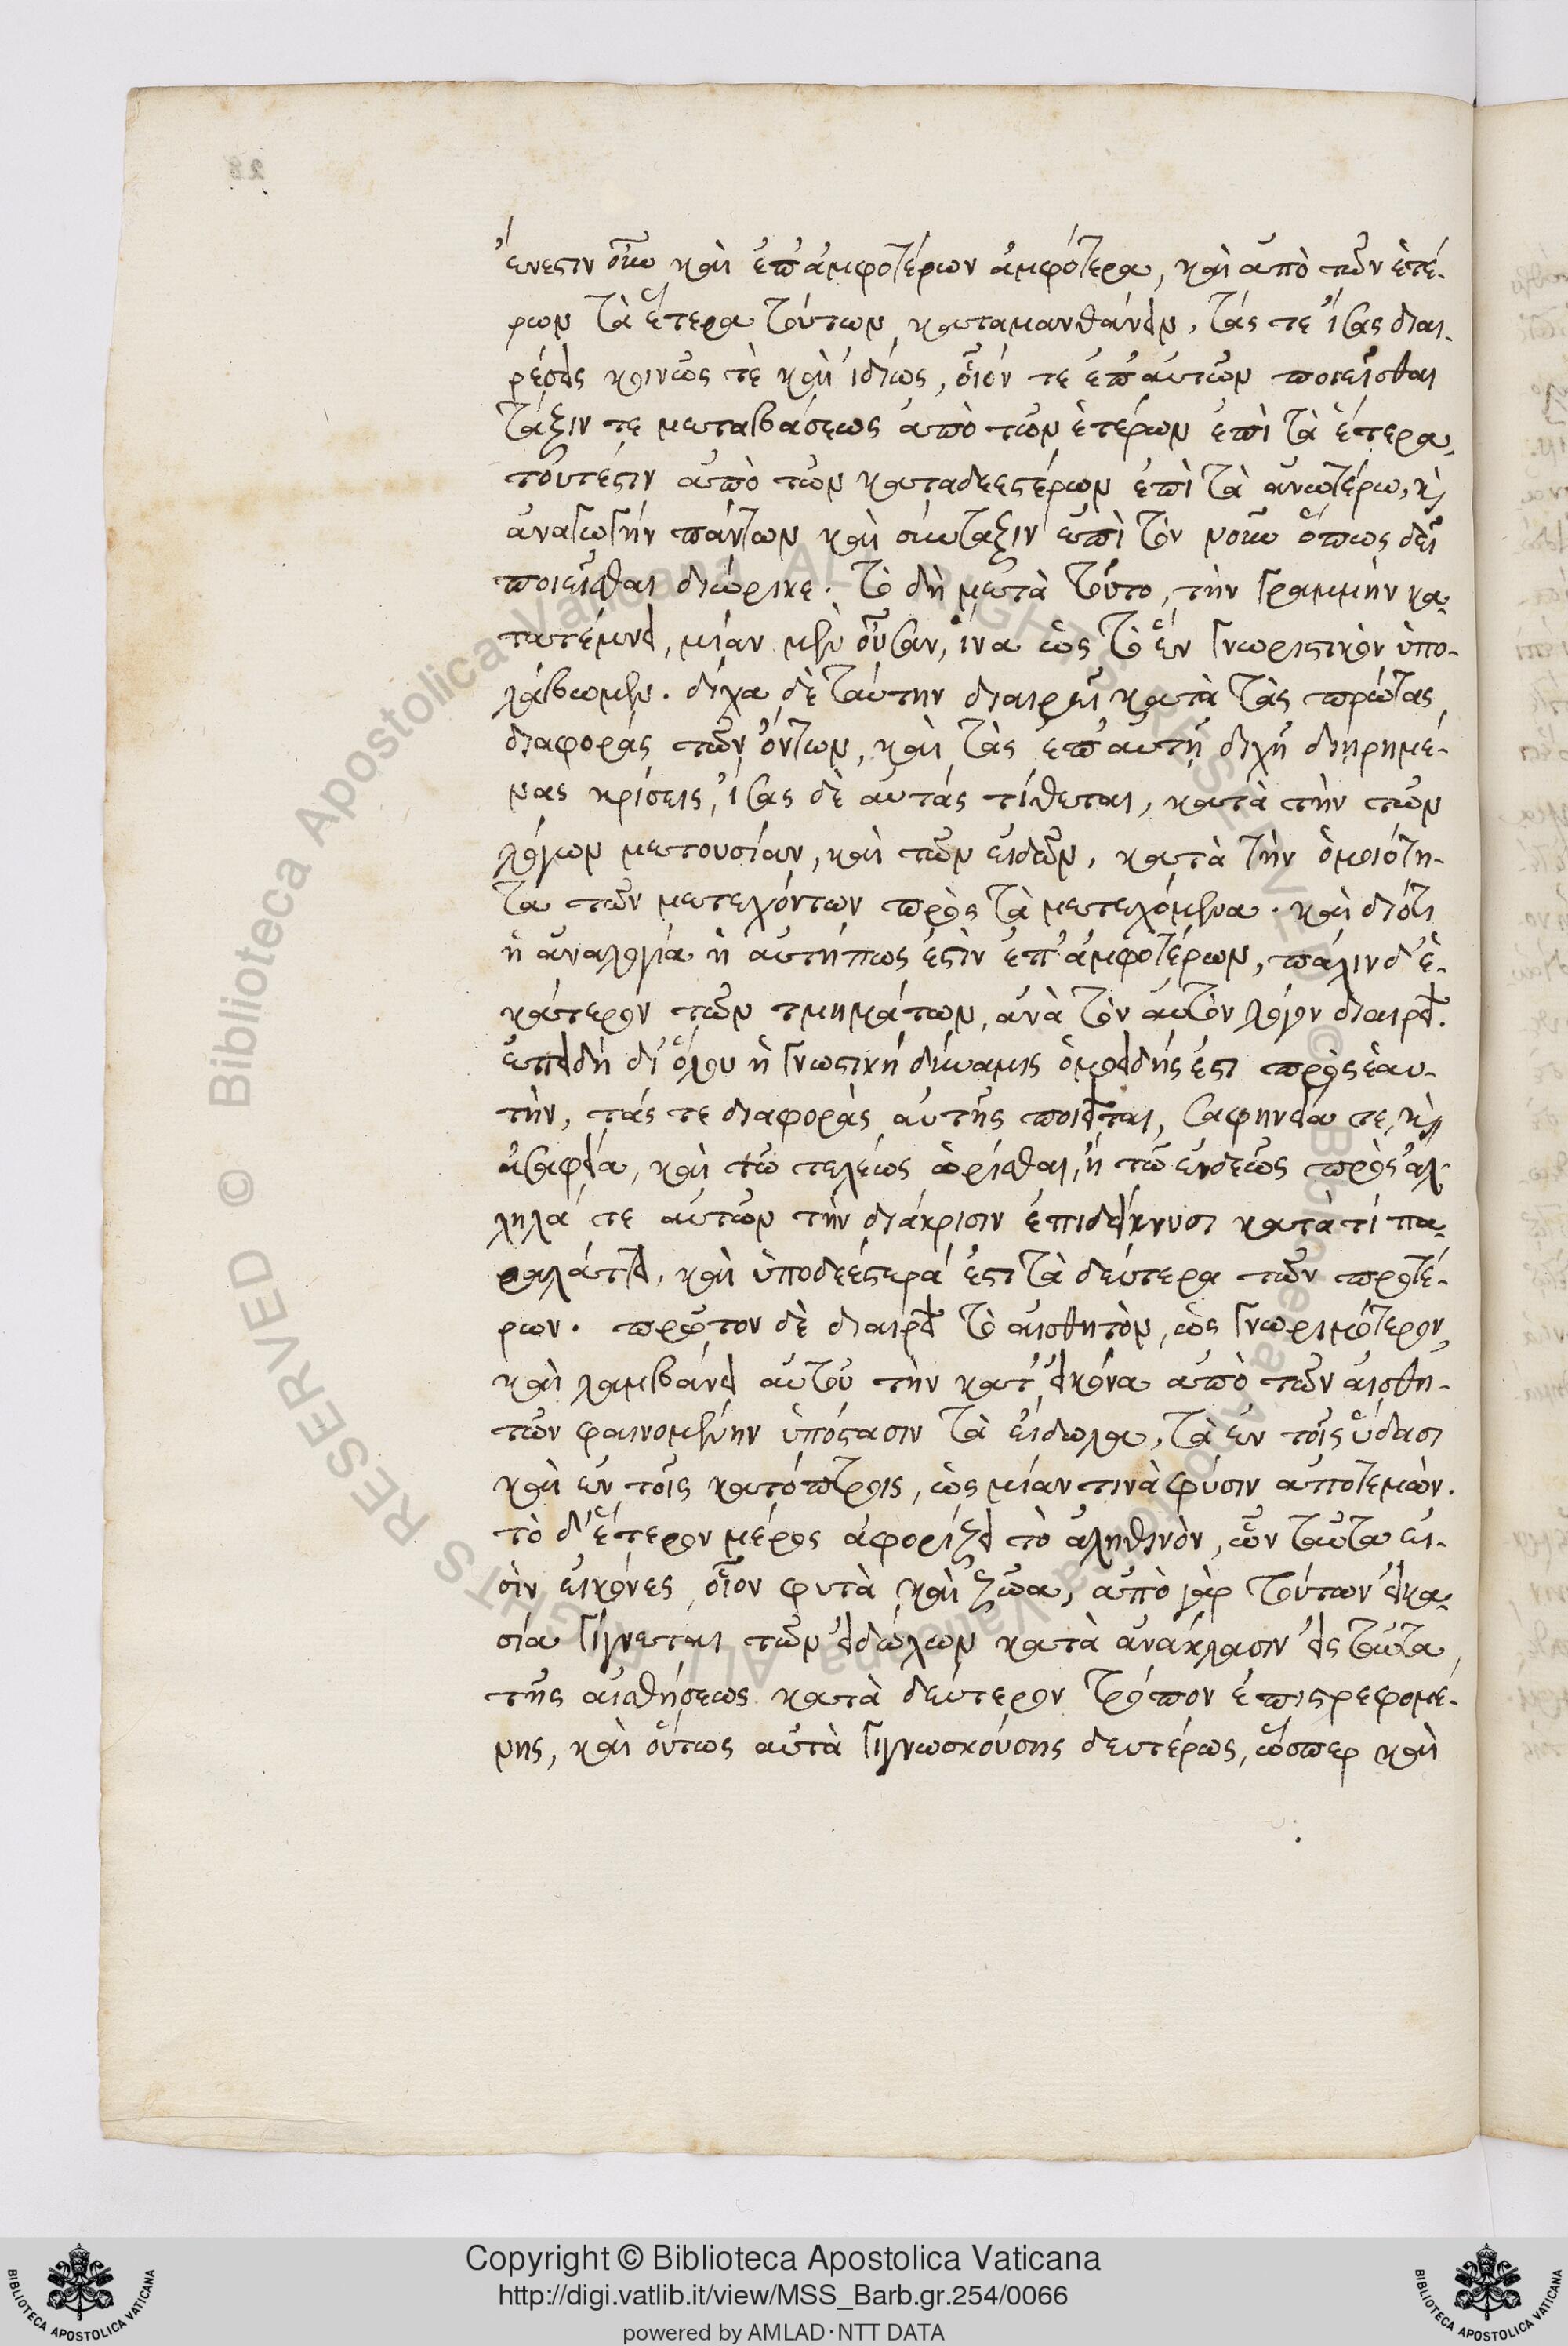 ἔνεστιν οὖν καὶ ἐπ' ἀμφοτέρων ἀμφότερα, καὶ ἀπὸ τῶν ἑτέ-
ρων τὰ ἕτερα τούτων καταμανθάνειν, τάς τε ἴσας διαι-
ρέσεις κοινῶς τὲ καὶ ἰδίως, οἷόν τε ἐπ' αὐτῶν ποιεῖσθαι
τάξιν τε μεταβάσεως ἀπὸ τῶν ἑτέρων ἐπὶ τὰ ἕτερα,
τοῦτέστιν ἀπὸ τῶν καταδεεστέρων ἐπὶ τὰ ἀνωτέρω, κ
ἀναγωγὴν πάντων καὶ σύνταξιν ἐπὶ τὸν νοῦν ὅπως δεῖ
ποιεῖσθαι διώρικε. τὸ δὴ μετὰ τοῦτο, τὴν γραμμὴν κα-
τατέμνει, μίαν μὲν οὖσαν, ἵνα ὡς τὸ ἓν γνωριστικὸν ὑπο-
λάβωμεν. δίχα δὲ ταύτην διαιρεῖ κατὰ τὰς πρώτας
διαφορὰς τῶν ὄντων, καὶ τὰς ἐπ' αὐτῇ διχῇ διῃρημέ-
νας κρίσεις, ἴσας δὲ αὐτάς τίθεται, κατὰ τὴν τῶν
λόγων μετουσίαν, καὶ τῶν εἰδῶν, κατὰ τὴν ὁμοιότη-
τα τῶν μετεχόντων πρὸς τὰ μετεχόμενα. καὶ διότι
ἡ ἀναλογία ἡ αὐτήπως ἐστὶν ἐπ' ἀμφοτέρων, πάλιν δ' ἑ-
κάτερον τῶν τμημάτων, ἀνὰ τὸν αὐτὸν λόγον διαιρεῖ.
ἐπειδὴ δι' ὅλου ἡ γνωστικὴ δύναμις ὁμοειδής ἐστι πρὸς ἑαυ-
τήν, τάς τε διαφορὰς αὐτῆς ποιεῖται, σαφηνεία τε, κ
ἀσαφεία, καὶ τῶ τελείως ὡρίσθαι, ἢ τῶ ἐνδεῶς πρὸς ἄλ-
ληλά τε αὐτῶν τὴν διάκρισιν ἐπιδείκνυσι κατὰ τί πα-
ραλάττει, καὶ ὑποδεέστερά ἐστι τὰ δεύτερα τῶν προτέ-
ρων. πρῶτον δὲ διαιρεῖ τὸ αἰσθητὸν, ὡς γνωριμώτερον,
καὶ λαμβάνει αὐτοῦ τὴν κατ' εἰκόνα ἀπὸ τῶν αἰσθη-
τῶν φαινομένην ὑπόστασιν τὰ εἴδωλα, τὰ ἐν τοῖς ὕδασι
καὶ ἐν τοῖς κατόπτροις, ὡς μίαν τινὰ φύσιν ἀποτεμὼν.
τὸ δ' ἕτερον μέρος ἀφορίζει τὸ ἀληθινὸν, ὧν ταῦτα εἰ-
σὶν εἰκόνες, οἷον φυτὰ καὶ ζῶα, ἀπὸ γὰρ τούτων εἰκα-
σία γίγνεται τῶν εἰδώλων κατὰ ἀνάκλασιν εἰς ταῦτα
τῆς αἰσθήσεως κατὰ δεύτερον τρόπον ἐπιστρεφομέ-
νης, καὶ οὕτως αὐτὰ γιγνωσκούσης δευτέρως, ὥσπερ καὶ
Copyright © Biblioteca Apostolica Vaticana
http://digi.vatlib.it/view/MSS_Barb.gr.254/0066
powered by AMLAD·NTT DATA